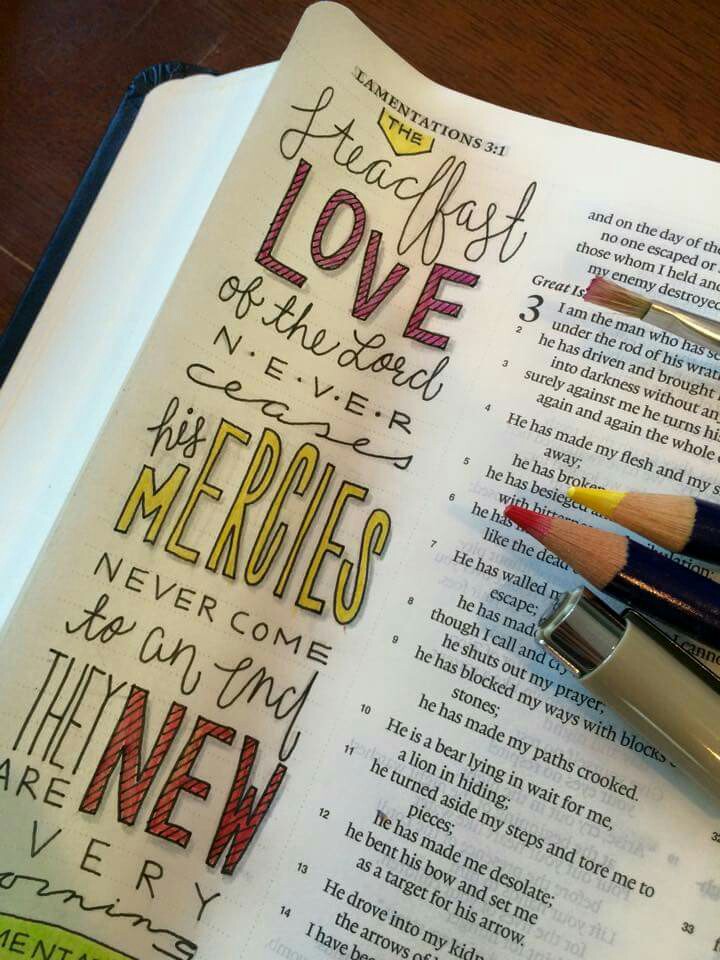 LAMENTATIONS 3:1
THE
steadfast
LOVE
of the Lord
N·E·V·E·R
ceases
his
MERCIES
NEVER COME
to an end
THEY
ARE
NEW
VERY
orning
MENTAT
and on the day of the
no one escaped or
those whom I held and
my enemy destroyed
Great Is
3 I am the man who has
under the rod of his wrat
2 he has driven and brought
into darkness without any
3 surely against me he turns his
again and again the whole
4 He has made my flesh and my
away;
he has broken
5 he has besieged and
with
6 he has
like the dead
7 He has walled
escape;
he has made
8 though I call and cry
he shuts out my prayer;
9 he has blocked my ways with blocks
stones;
he has made my paths crooked.
10 He is a bear lying in wait for me,
a lion in hiding;
11 he turned aside my steps and tore me to
pieces;
he has made me desolate;
12 he bent his bow and set me
as a target for his arrow.
13 He drove into my kidn
the arrows of
14 I have
cannot
33